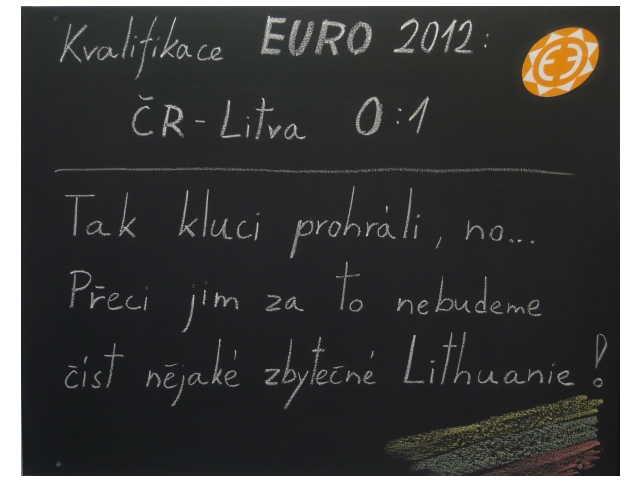 Kvalifikace EURO 2012:
ČR-Litva 0:1
Tak kluci prohráli, no...
Přeci jim za to nebudeme
číst nějaké zbytečné Lithuanie!